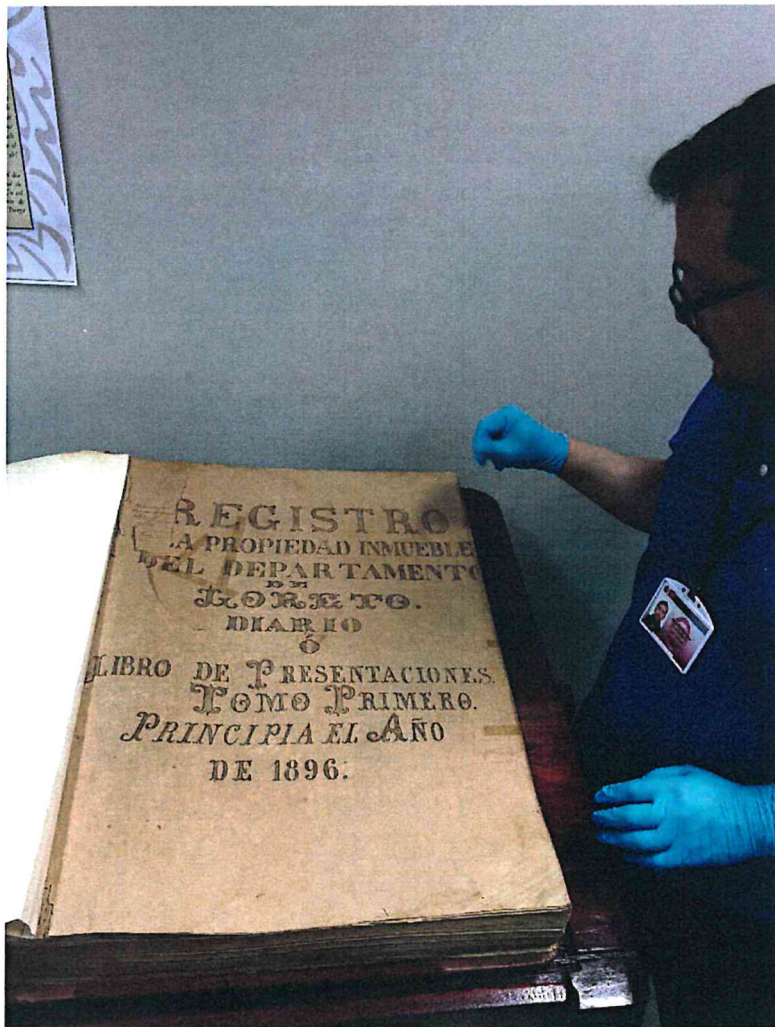 REGISTRO
LA PROPIEDAD INMUEBLE
DEL DEPARTAMENTO
DE
LORETO.
DIARIO
Ó
LIBRO DE PRESENTACIONES.
TOMO PRIMERO.
PRINCIPIA EL AÑO
DE 1896.